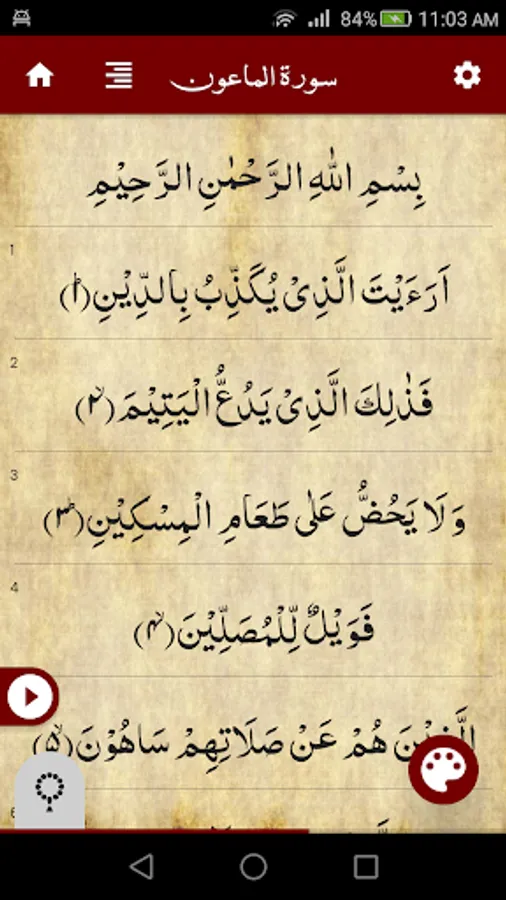 84% 11:03 AM
سورة الماعون
بِسْمِ اللهِ الرَّحْمٰنِ الرَّحِيْمِ
1
اَرَءَيْتَ الَّذِىْ يُكَذِّبُ بِالدِّيْنِ(۱ؕ)
2
فَذٰلِكَ الَّذِىْ يَدُعُّ الْيَتِيْمَ(۲ۙ)
3
وَلَا يَحُضُّ عَلٰى طَعَامِ الْمِسْكِيْنِ(۳ؕ)
4
فَوَيْلٌ لِّلْمُصَلِّيْنَ(۴ۙ)
الَّذِيْنَ هُمْ عَنْ صَلَاتِهِمْ سَاهُوْنَ(۵ۙ)
6